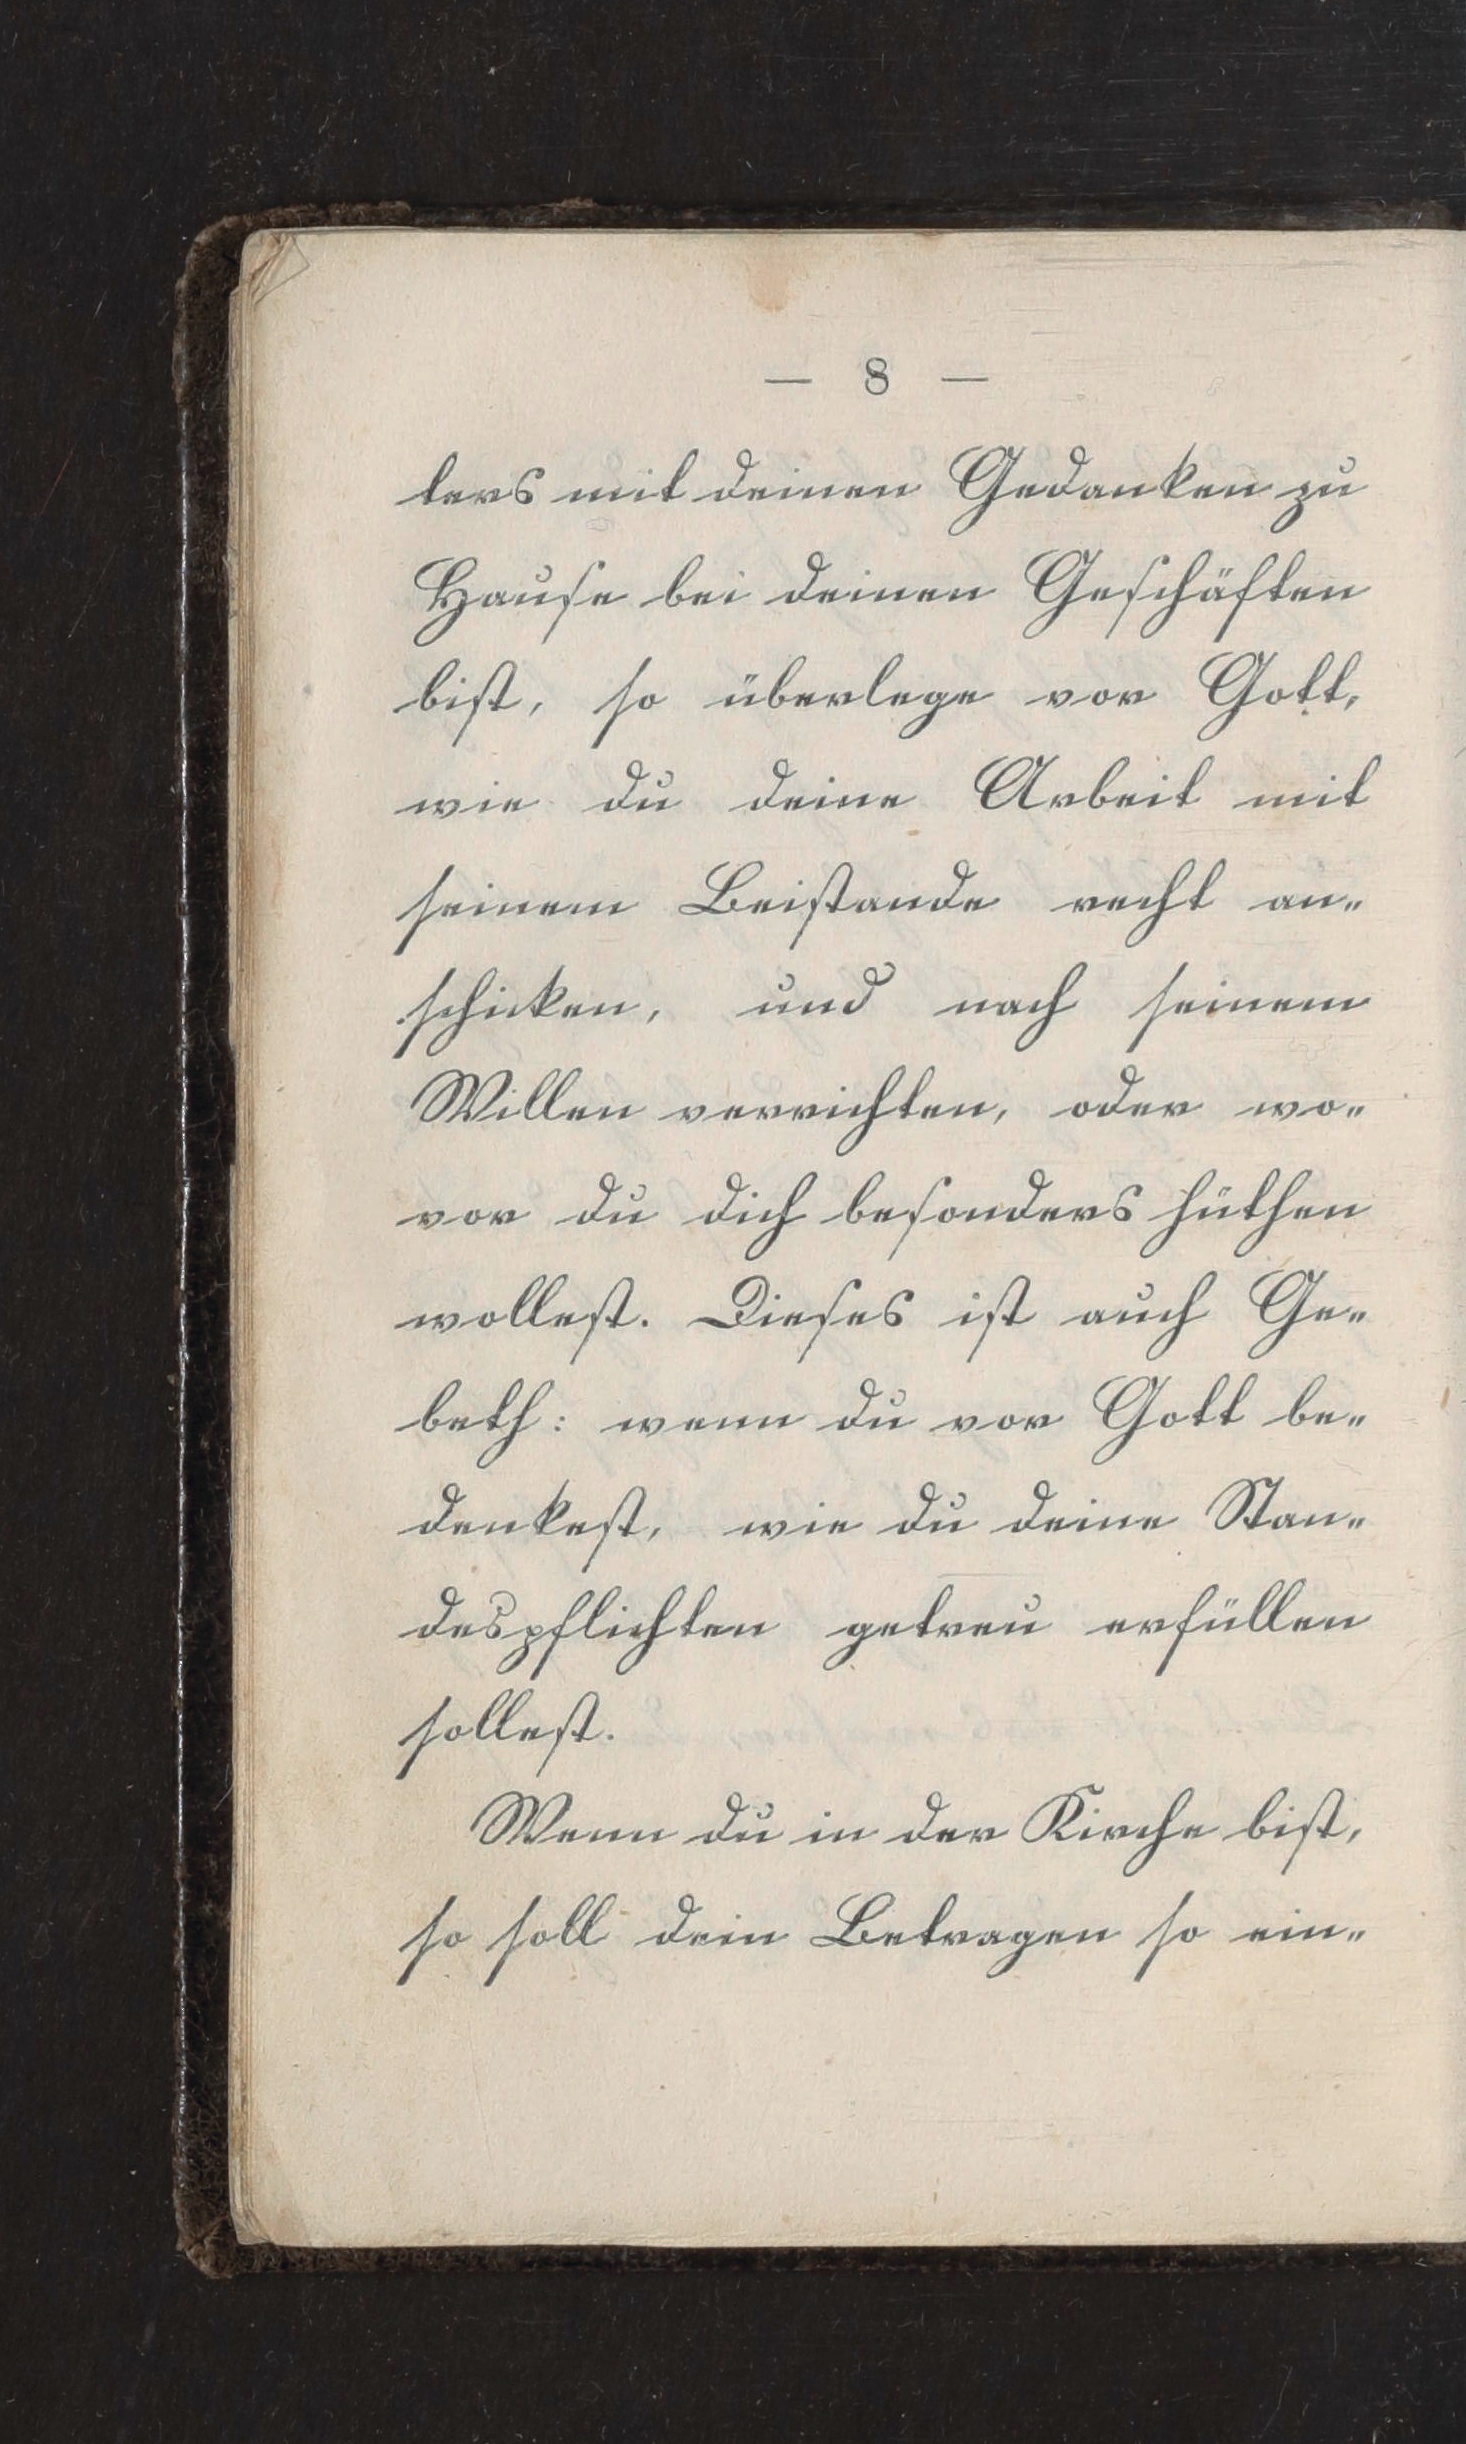 — 8 —
ters mit deinen Gedanken zu
Hause bei deinen Geschäften
bist, so überlege vor Gott,
wie du deine Arbeit mit
seinem Beistande recht an-
schicken, und nach seinem
Willen verrichten, oder wo-
vor du dich besonders hüthen
wollest. Dieses ist auch Ge-
beth: wenn du vor Gott be-
denkest, wie du deine Stan-
despflichten getreu erfüllen
sollest.
Wenn du in der Kirche bist,
so soll dein Betragen so ein-